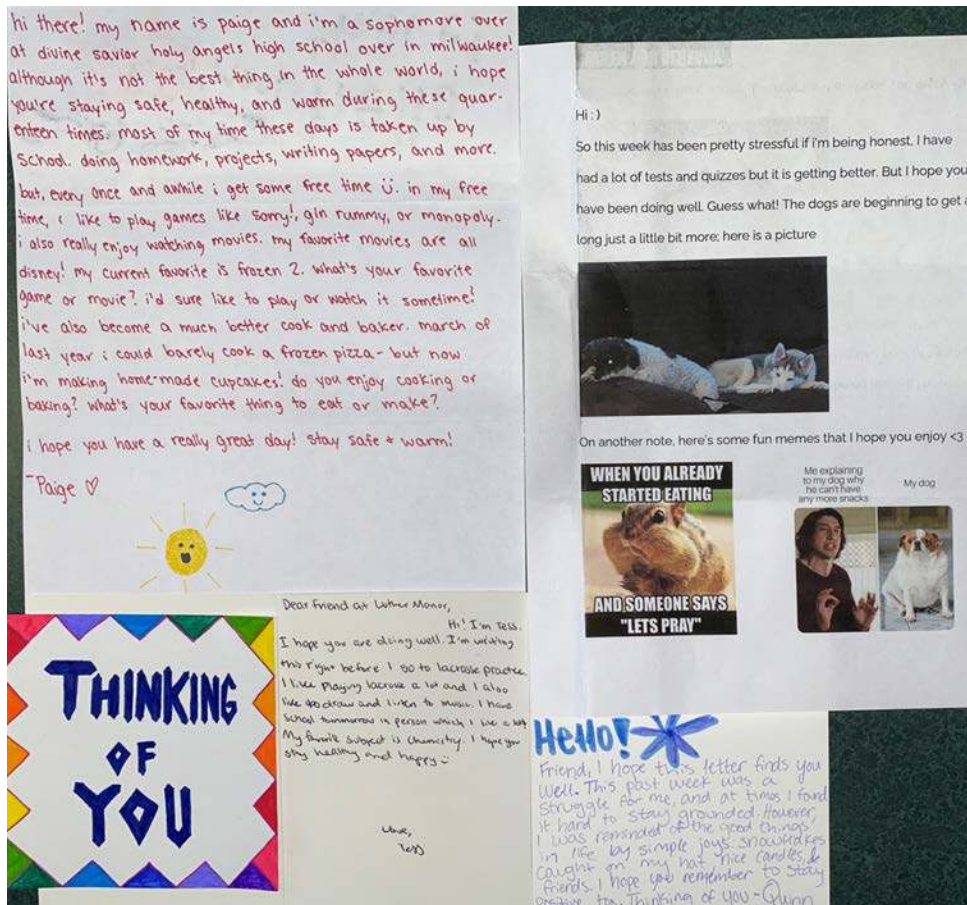 hi there! my name is paige and i'm a sophomore over
at divine savior holy angels high school over in milwaukee!
although it's not the best thing in the whole world, i hope
you're staying safe, healthy, and warm during these quar-
enteen times. most of my time these days is taken up by
school. doing homework, projects, writing papers, and more.
but, every once and awhile i get some free time ü. in my free
time, i like to play games like sorry!, gin rummy, or monopoly.
i also really enjoy watching movies. my favorite movies are all
disney! my current favorite is frozen 2. what's your favorite
game or movie? i'd sure like to play or watch it sometime!
i've also become a much better cook and baker. march of
last year i could barely cook a frozen pizza- but now
i'm making home-made cupcakes! do you enjoy cooking or
baking? what's your favorite thing to eat or make?
i hope you have a really great day! stay safe + warm!
~Paige ♡
Hi :)
So this week has been pretty stressful if i'm being honest. I have
had a lot of tests and quizzes but it is getting better. But I hope you
have been doing well. Guess what! The dogs are beginning to get a
long just a little bit more; here is a picture
On another note, here's some fun memes that I hope you enjoy <3
WHEN YOU ALREADY
STARTED EATING
AND SOMEONE SAYS
"LETS PRAY"
Me explaining
to my dog why
he can't have
any more snacks
My dog
THINKING
OF
YOU
Dear Friend at Luther Manor,
Hi! I'm Tess.
I hope you are doing well. I'm writing
this right before I go to lacrosse practice.
I like playing lacrosse a lot and I also
like to draw and listen to music. I have
school tommorrow in person which I like a lot
My favorite subject is chemistry. I hope you
stay healthy and happy :)
Love,
Tess
Hello!
Friend, I hope this letter finds you
well. This past week was a
struggle for me, and at times I found
it hard to stay grounded. However,
I was reminded of the good things
in life by simple joys: snowflakes
caught on my hat, nice candles, &
friends. I hope you remember to stay
positive too. Thinking of you - Quinn